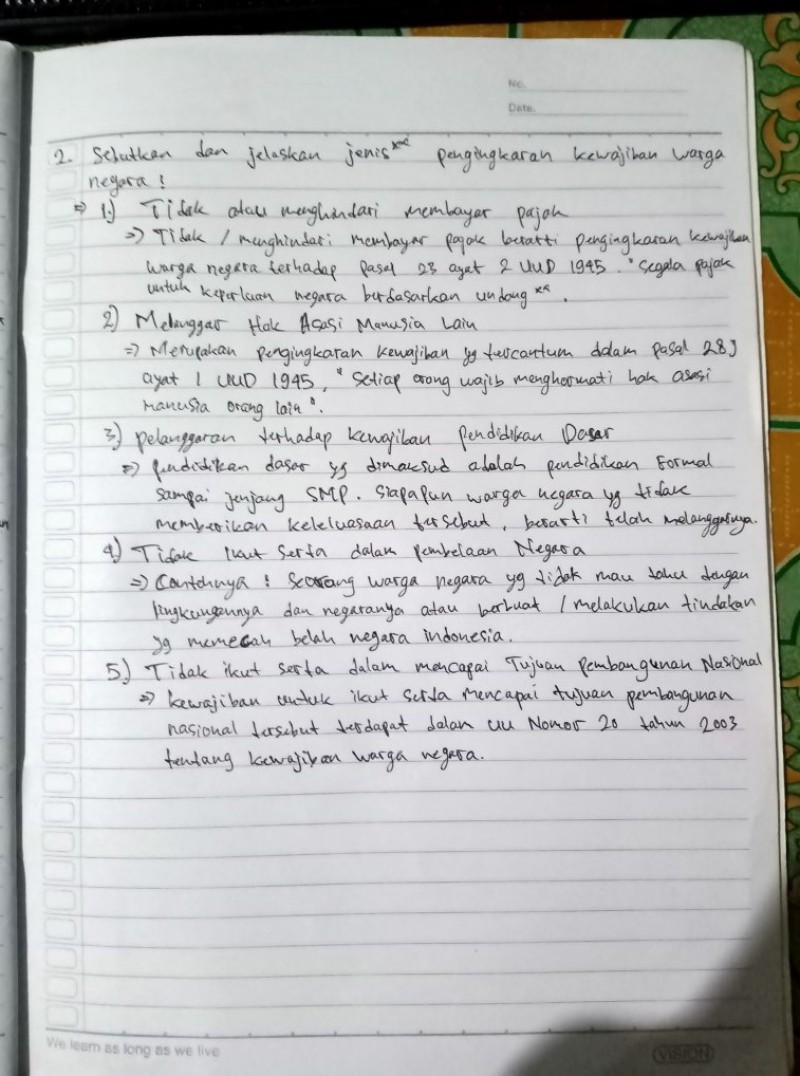 No.
Date.
2. Sebutkan dan jelaskan jenis pengingkaran kewajiban warga
negara !
⇒ 1.) Tidak atau menghindari membayar pajak
⇒ Tidak / menghindari membayar pajak berarti pengingkaran kewajiban
warga negara terhadap Pasal 23 ayat 2 UUD 1945. "Segala pajak
untuk keperluan negara berdasarkan undang xx.
2) Melanggar Hak Asasi Manusia Lain
⇒ Merupakan pengingkaran kewajiban yg tercantum dalam pasal 28J
ayat 1 UUD 1945, "Setiap orang wajib menghormati hak asasi
manusia orang lain".
3) pelanggaran terhadap kewajiban Pendidikan Dasar
⇒ pendidikan dasar yg dimaksud adalah pendidikan Formal
sampai jenjang SMP. Siapapun warga negara yg tidak
memberikan keleluasaan tersebut, berarti telah melanggarnya.
4) Tidak Ikut Serta dalam Pembelaan Negara
⇒ Contohnya : Seorang warga negara yg tidak mau tahu dengan
lingkungannya dan negaranya atau berbuat / melakukan tindakan
yg memecah belah negara indonesia.
5.) Tidak ikut serta dalam mencapai Tujuan Pembangunan Nasional
⇒ kewajiban untuk ikut serta mencapai tujuan pembangunan
nasional tersebut terdapat dalam UU Nomor 20 tahun 2003
tentang kewajiban warga negara.
We learn as long as we live
VISION